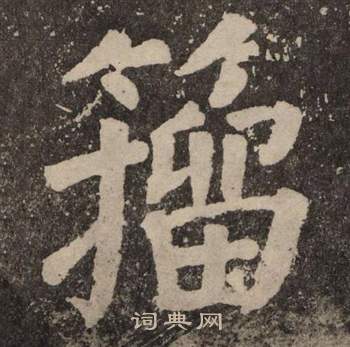 籀
词典网